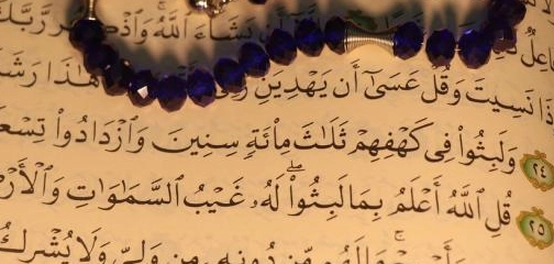 يَشَآءَ ٱللَّهُ وَٱذْ
نَسِيتَ وَقُلْ عَسَىٰٓ أَن يَهْدِيَنِ هَٰذَا رَشَ
وَلَبِثُوا۟ فِى كَهْفِهِمْ ثَلَٰثَ مِا۟ئَةٍ سِنِينَ وَٱزْدَادُوا۟ تِسْعً
٢٤ قُلِ ٱللَّهُ أَعْلَمُ بِمَا لَبِثُوا۟ ۖ لَهُۥ غَيْبُ ٱلسَّمَٰوَٰتِ وَٱلْأَرْ
٢٥ مِّن دُونِهِۦ مِن وَلِىٍّ وَلَا يُشْرِكُ